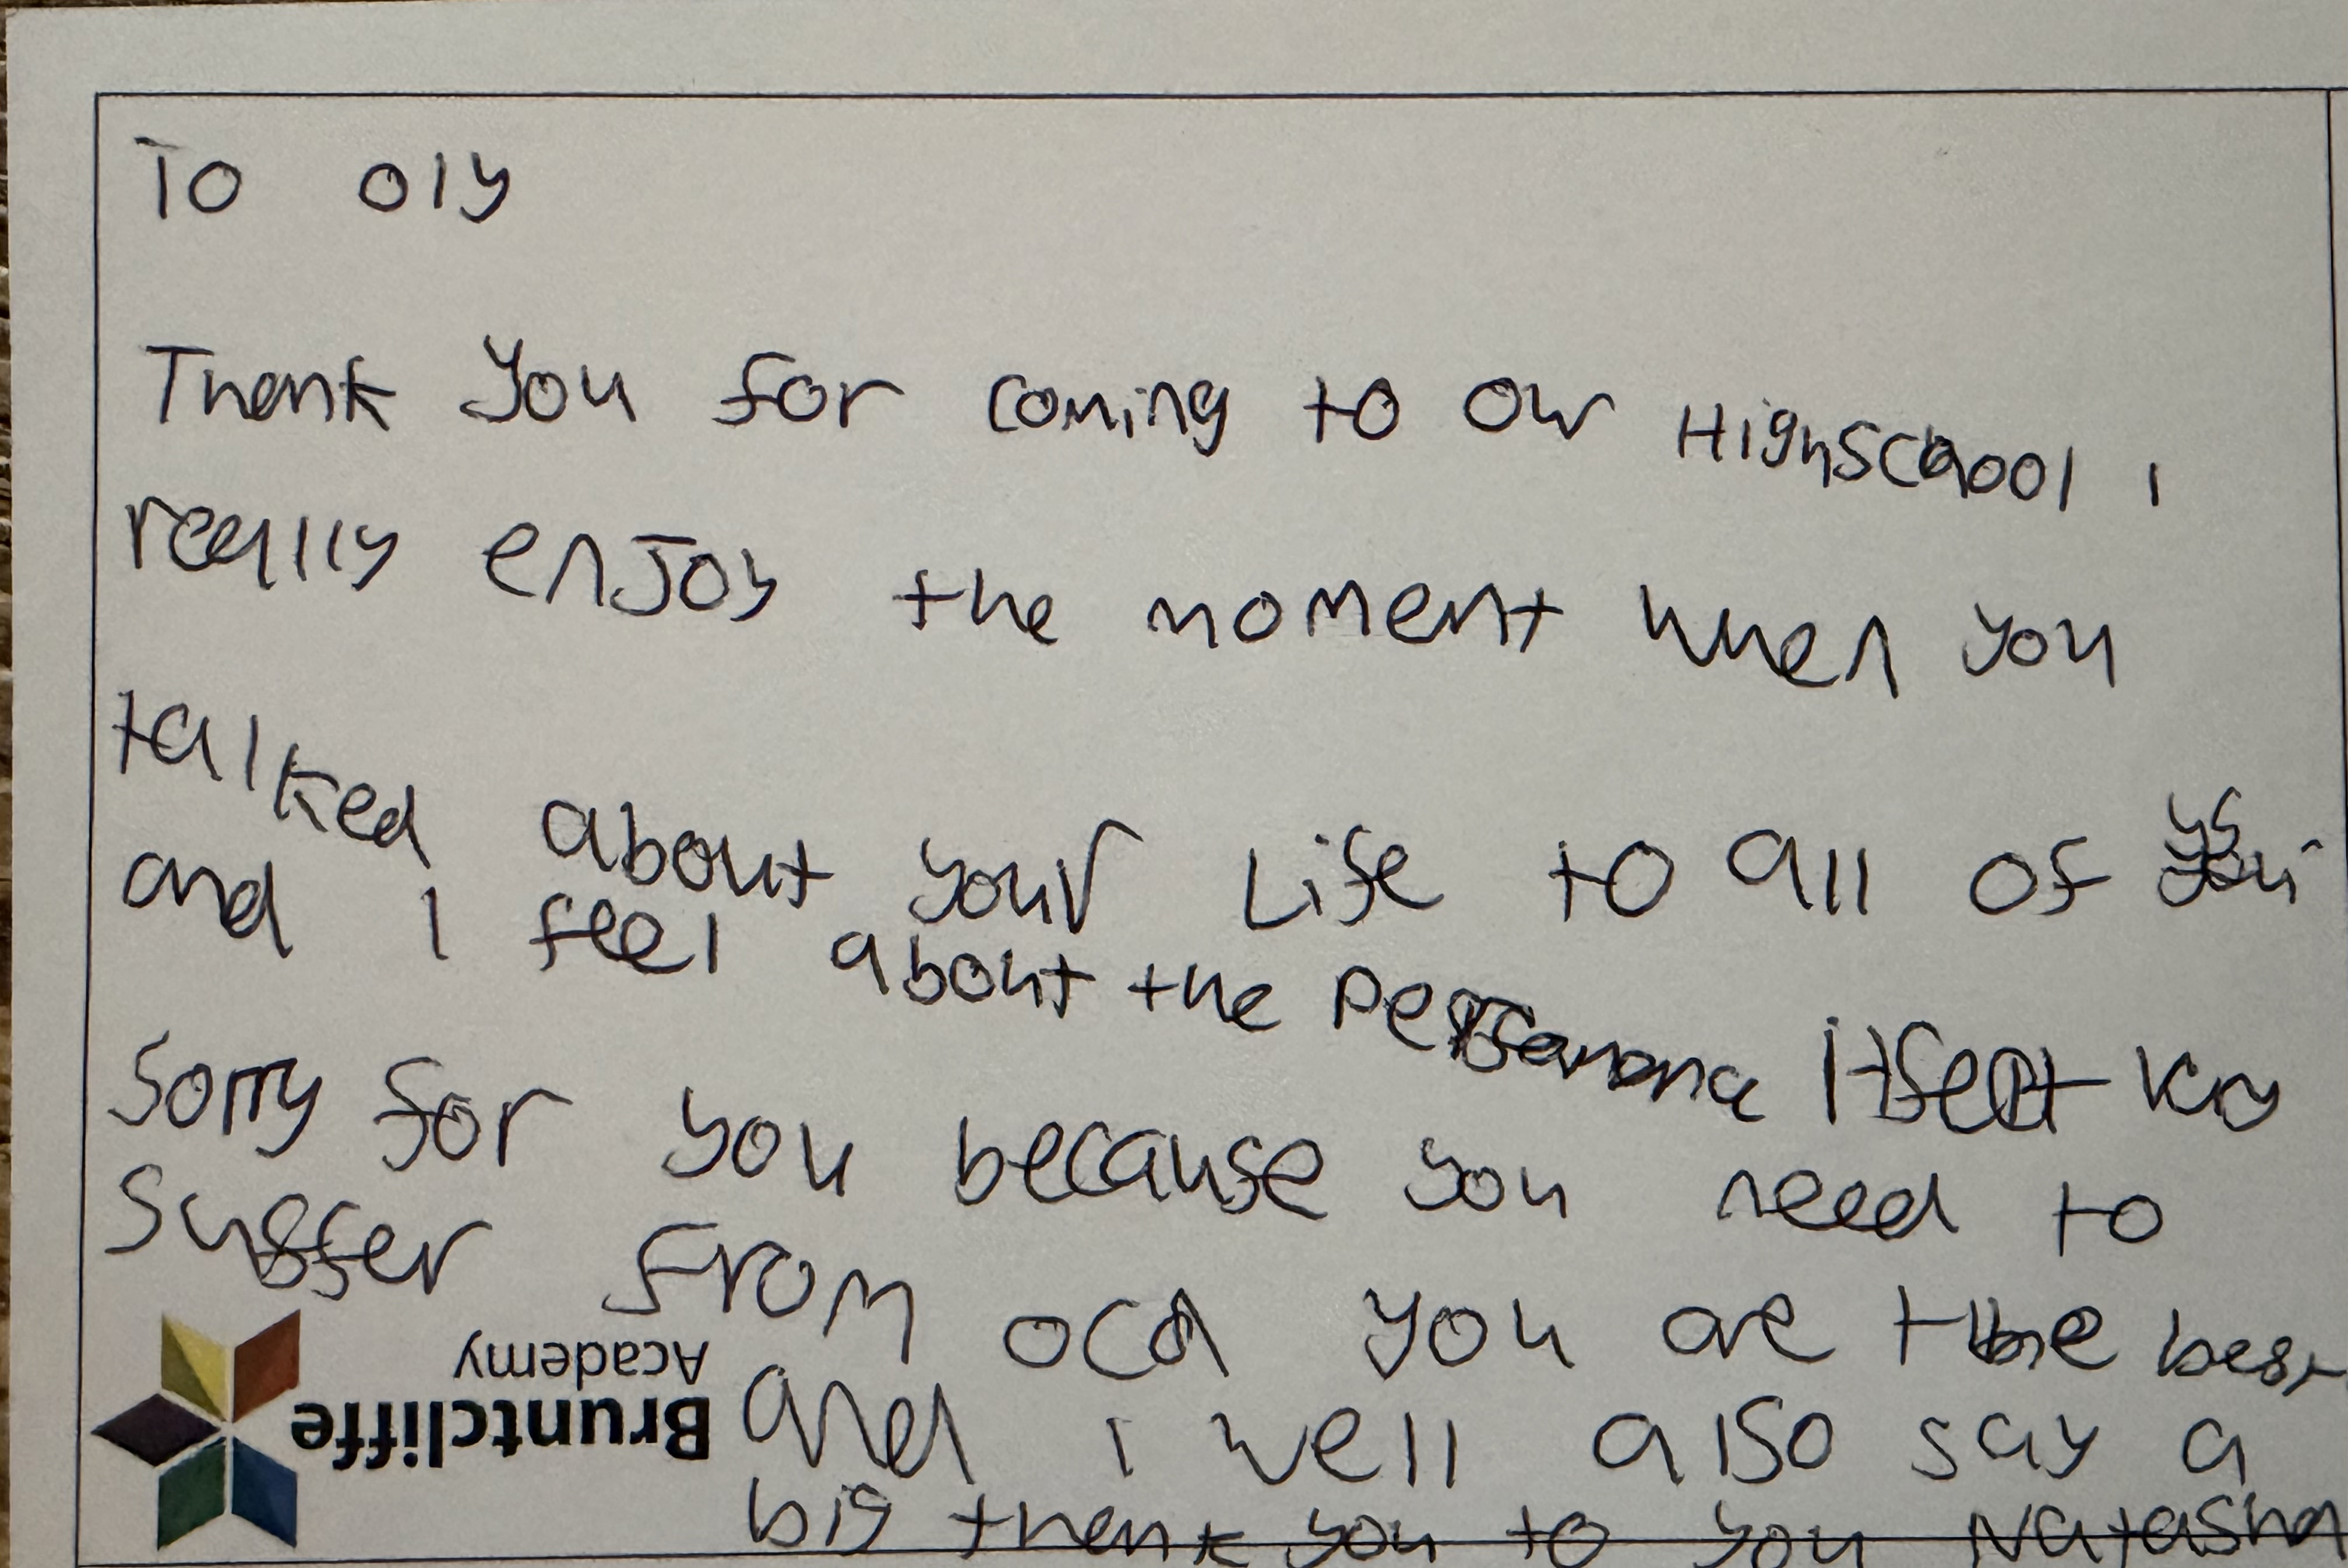 To oly
Thenk you for coming to our HighSchool i
really enJoy the moment when you
talked about your Life to all of us
and I feel about the
Sorry for you because you need to
suffer From ocd you are the best
and i well also say a
big thenk you to you Natasha
Bruntcliffe
Academy